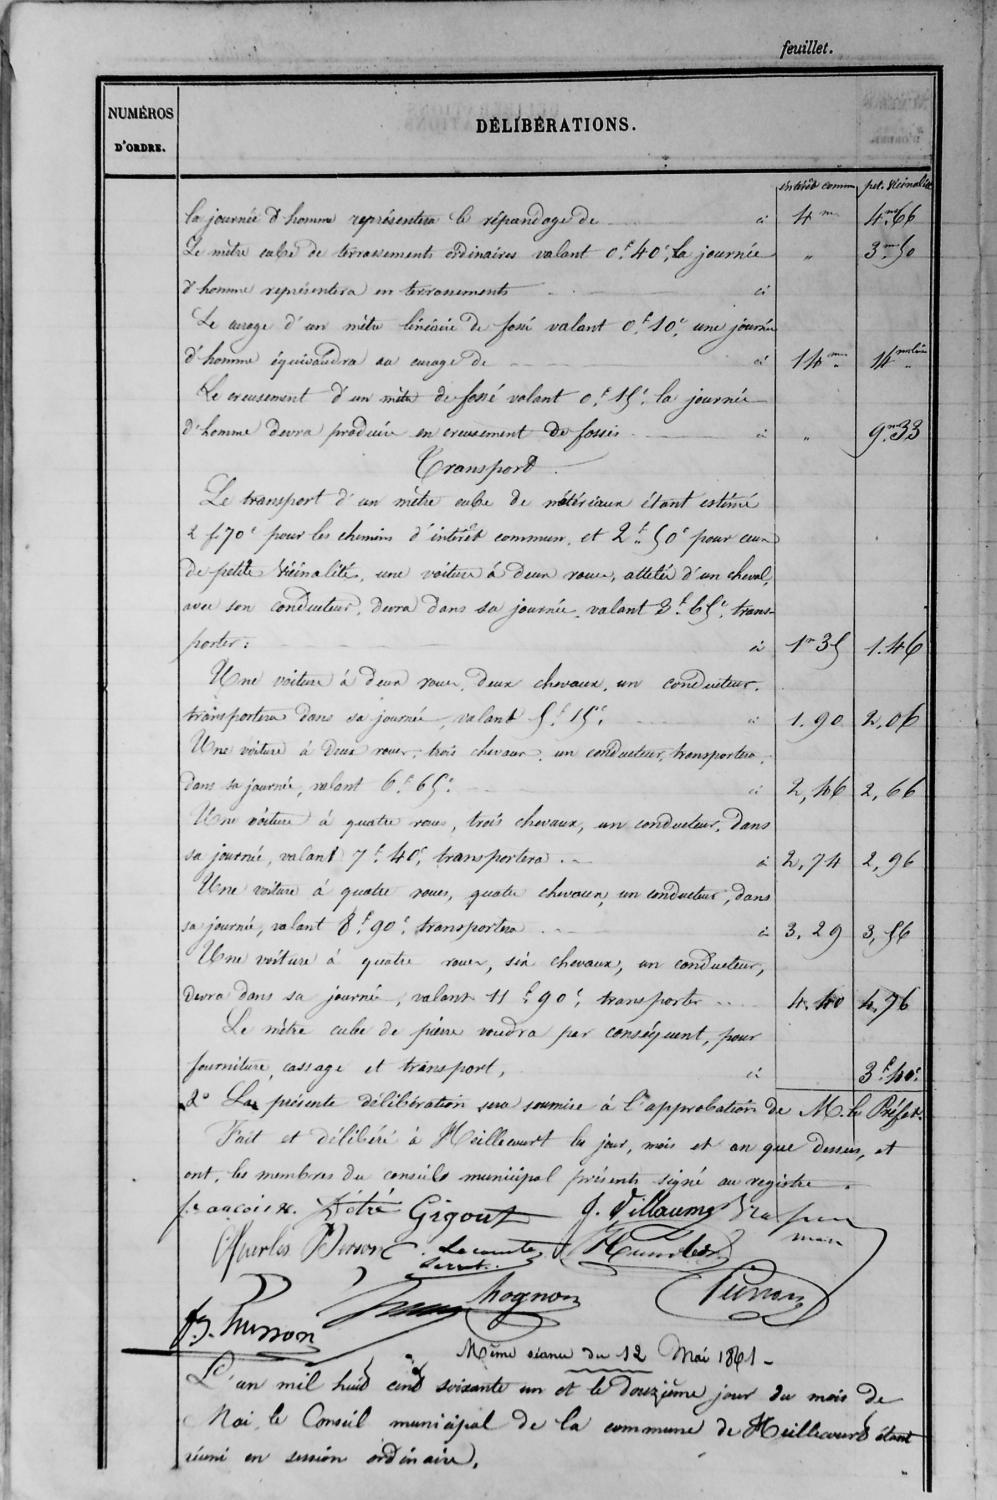 feuillet.
NUMÉROS
D'ORDRE.
DÉLIBÉRATIONS.
intérêt comm pet. vicinalité
la journée d'homme représentera le répandage de ci 4 m 4m66
Le mètre cube de terrassements ordinaires valant 0f.40c, la journée " 3m50
d'homme représentera en terrassements ci
Le curage d'un mètre linéaire de fossé valant 0f.10c, une journée
d'homme équivaudra au curage de ci 14 m 14m
Le creusement d'un mètre de fossé valant 0f.15c. la journée
d'homme devra produire en creusement de fossés ci " 9m33
Transport.
Le transport d'un mètre cube de matériaux étant estimé
2f.70c pour les chemins d'intérêt commun, et 2f.50c pour ceux
de petite vicinalité, une voiture à deux roues, attelée d'un cheval,
avec son conducteur, devra dans sa journée, valant 3f.65c, trans-
porter: ci 1m35 1.46
Une voiture à deux roues, deux chevaux, un conducteur,
transportera dans sa journée, valant 5f.15c. ci 1.90 2,06
Une voiture à deux roues, trois chevaux, un conducteur, transportera,
dans sa journée, valant 6f.65c. ci 2,46 2,66
Une voiture à quatre roues, trois chevaux, un conducteur, dans
sa journée, valant 7f.40c, transportera ci 2,74 2,96
Une voiture à quatre roues, quatre chevaux, un conducteur, dans
sa journée, valant 8f.90c, transportera ci 3.29 3,56
Une voiture à quatre roues, six chevaux, un conducteur,
devra dans sa journée, valant 11f.90c, transporter 4.40 4.76
Le mètre cube de pierre vaudra par conséquent, pour
fourniture, cassage et transport, ci 3f.40c.
2° La présente délibération sera soumise à l'approbation de M. le Préfet.
Fait et délibéré à Heillecourt les jour, mois et an que dessus, et
ont, les membres du conseil municipal présents signé au registre.
françois x. Gigout J. Villaume
Charles Lecomte
hognon Pierson
Même séance du 12 Mai 1861 -
L'an mil huit cent soixante un et le douzième jour du mois de
Mai, le Conseil municipal de la commune de Heillecourt étant
réuni en session ordinaire,